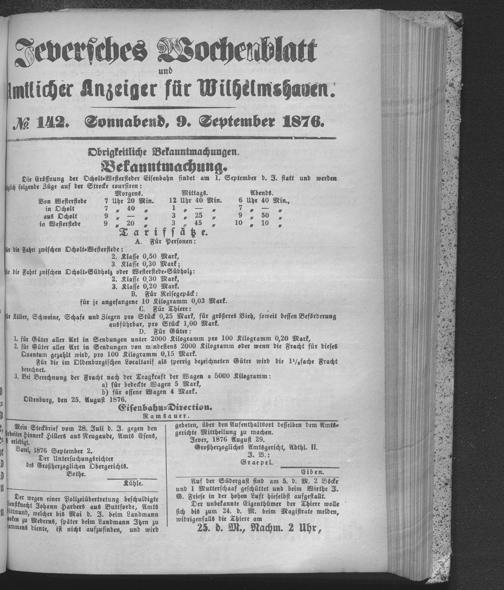 Jeversches Wochenblatt
und
Amtlicher Anzeiger für Wilhelmshaven.
№ 142. Sonnabend, 9. September 1876.
Obrigkeitliche Bekanntmachungen.
Bekanntmachung.
Die Eröffnung der Ocholt-Westersteder Eisenbahn findet am 1. September d. J. statt und werden
folgende Züge auf der Strecke coursiren:
Morgens. Mittags. Abends.
Von Westerstede 7 Uhr 20 Min. 12 Uhr 40 Min. 6 Uhr 40 Min.,
in Ocholt 7 „ 40 „ 1 „ — „ 7 „ — „
aus Ocholt 9 „ — „ 3 „ 25 „ 9 „ 50 „
in Westerstede 9 „ 20 „ 3 „ 45 „ 10 „ 10 „
Tarifsätze.
A. Für Personen:
die Fahrt zwischen Ocholt-Westerstede:
2. Klasse 0,50 Mark,
3. Klasse 0,30 Mark;
die Fahrt zwischen Ocholt-Südholz oder Westerstede-Südholz:
2. Klasse 0,30 Mark,
3. Klasse 0,20 Mark.
B. Für Reisegepäck:
für je angefangene 10 Kilogramm 0,03 Mark.
C. Für Thiere:
Kälber, Schweine, Schafe und Ziegen pro Stück 0,25 Mark, für größeres Vieh, soweit dessen Beförderung
ausführbar, pro Stück 1,00 Mark.
D. Für Güter:
1. für Güter aller Art in Sendungen unter 2000 Kilogramm pro 100 Kilogramm 0,20 Mark,
2. für Güter aller Art in Sendungen von mindestens 2000 Kilogramm oder wenn die Fracht für dieses
Quantum gezahlt wird, pro 100 Kilogramm 0,15 Mark.
Für die im Oldenburgischen Localtarif als sperrig bezeichneten Güter wird die 1½fache Fracht
berechnet.
3. Bei Berechnung der Fracht nach der Tragkraft der Wagen a 5000 Kilogramm:
a) für bedeckte Wagen 5 Mark,
b) für offene Wagen 4 Mark.
Oldenburg, den 25. August 1876.
Eisenbahn-Direction.
Ramsauer.
Mein Steckbrief vom 28. Juli d. J. gegen den
Hinnerk Hillers aus Neugaude, Amts Esens,
erledigt.
Bant, 1876 September 2.
Der Untersuchungsrichter
des Großherzoglichen Obergerichts.
Bothe.
Kühle.
Der wegen einer Polizeiübertretung beschuldigte
Johann Harbers aus Buttforde, Amts
Wittmund, welcher bis Mai d. J. beim Landmann
zu Mederns, später beim Landmann Ihen zu
diente, ist nicht aufzufinden, und wird
gebeten, über den Aufenthaltsort desselben dem Amts-
gerichte Mittheilung zu machen.
Jever, 1876 August 29.
Großherzogliches Amtsgericht, Abthl. II.
J. V.:
Graepel.
Eiben.
Auf der Südergast sind am 5. d. M. 2 Böcke
und 1 Mutterschaaf geschüttet und beim Wirthe J.
G. Friese in der hohen Luft hieselbst aufgestallt.
Der unbekannte Eigenthümer der Thiere wolle
sich bis zum 24. d. M. beim Magistrate melden,
widrigenfalls die Thiere am
25. d. M., Nachm. 2 Uhr,